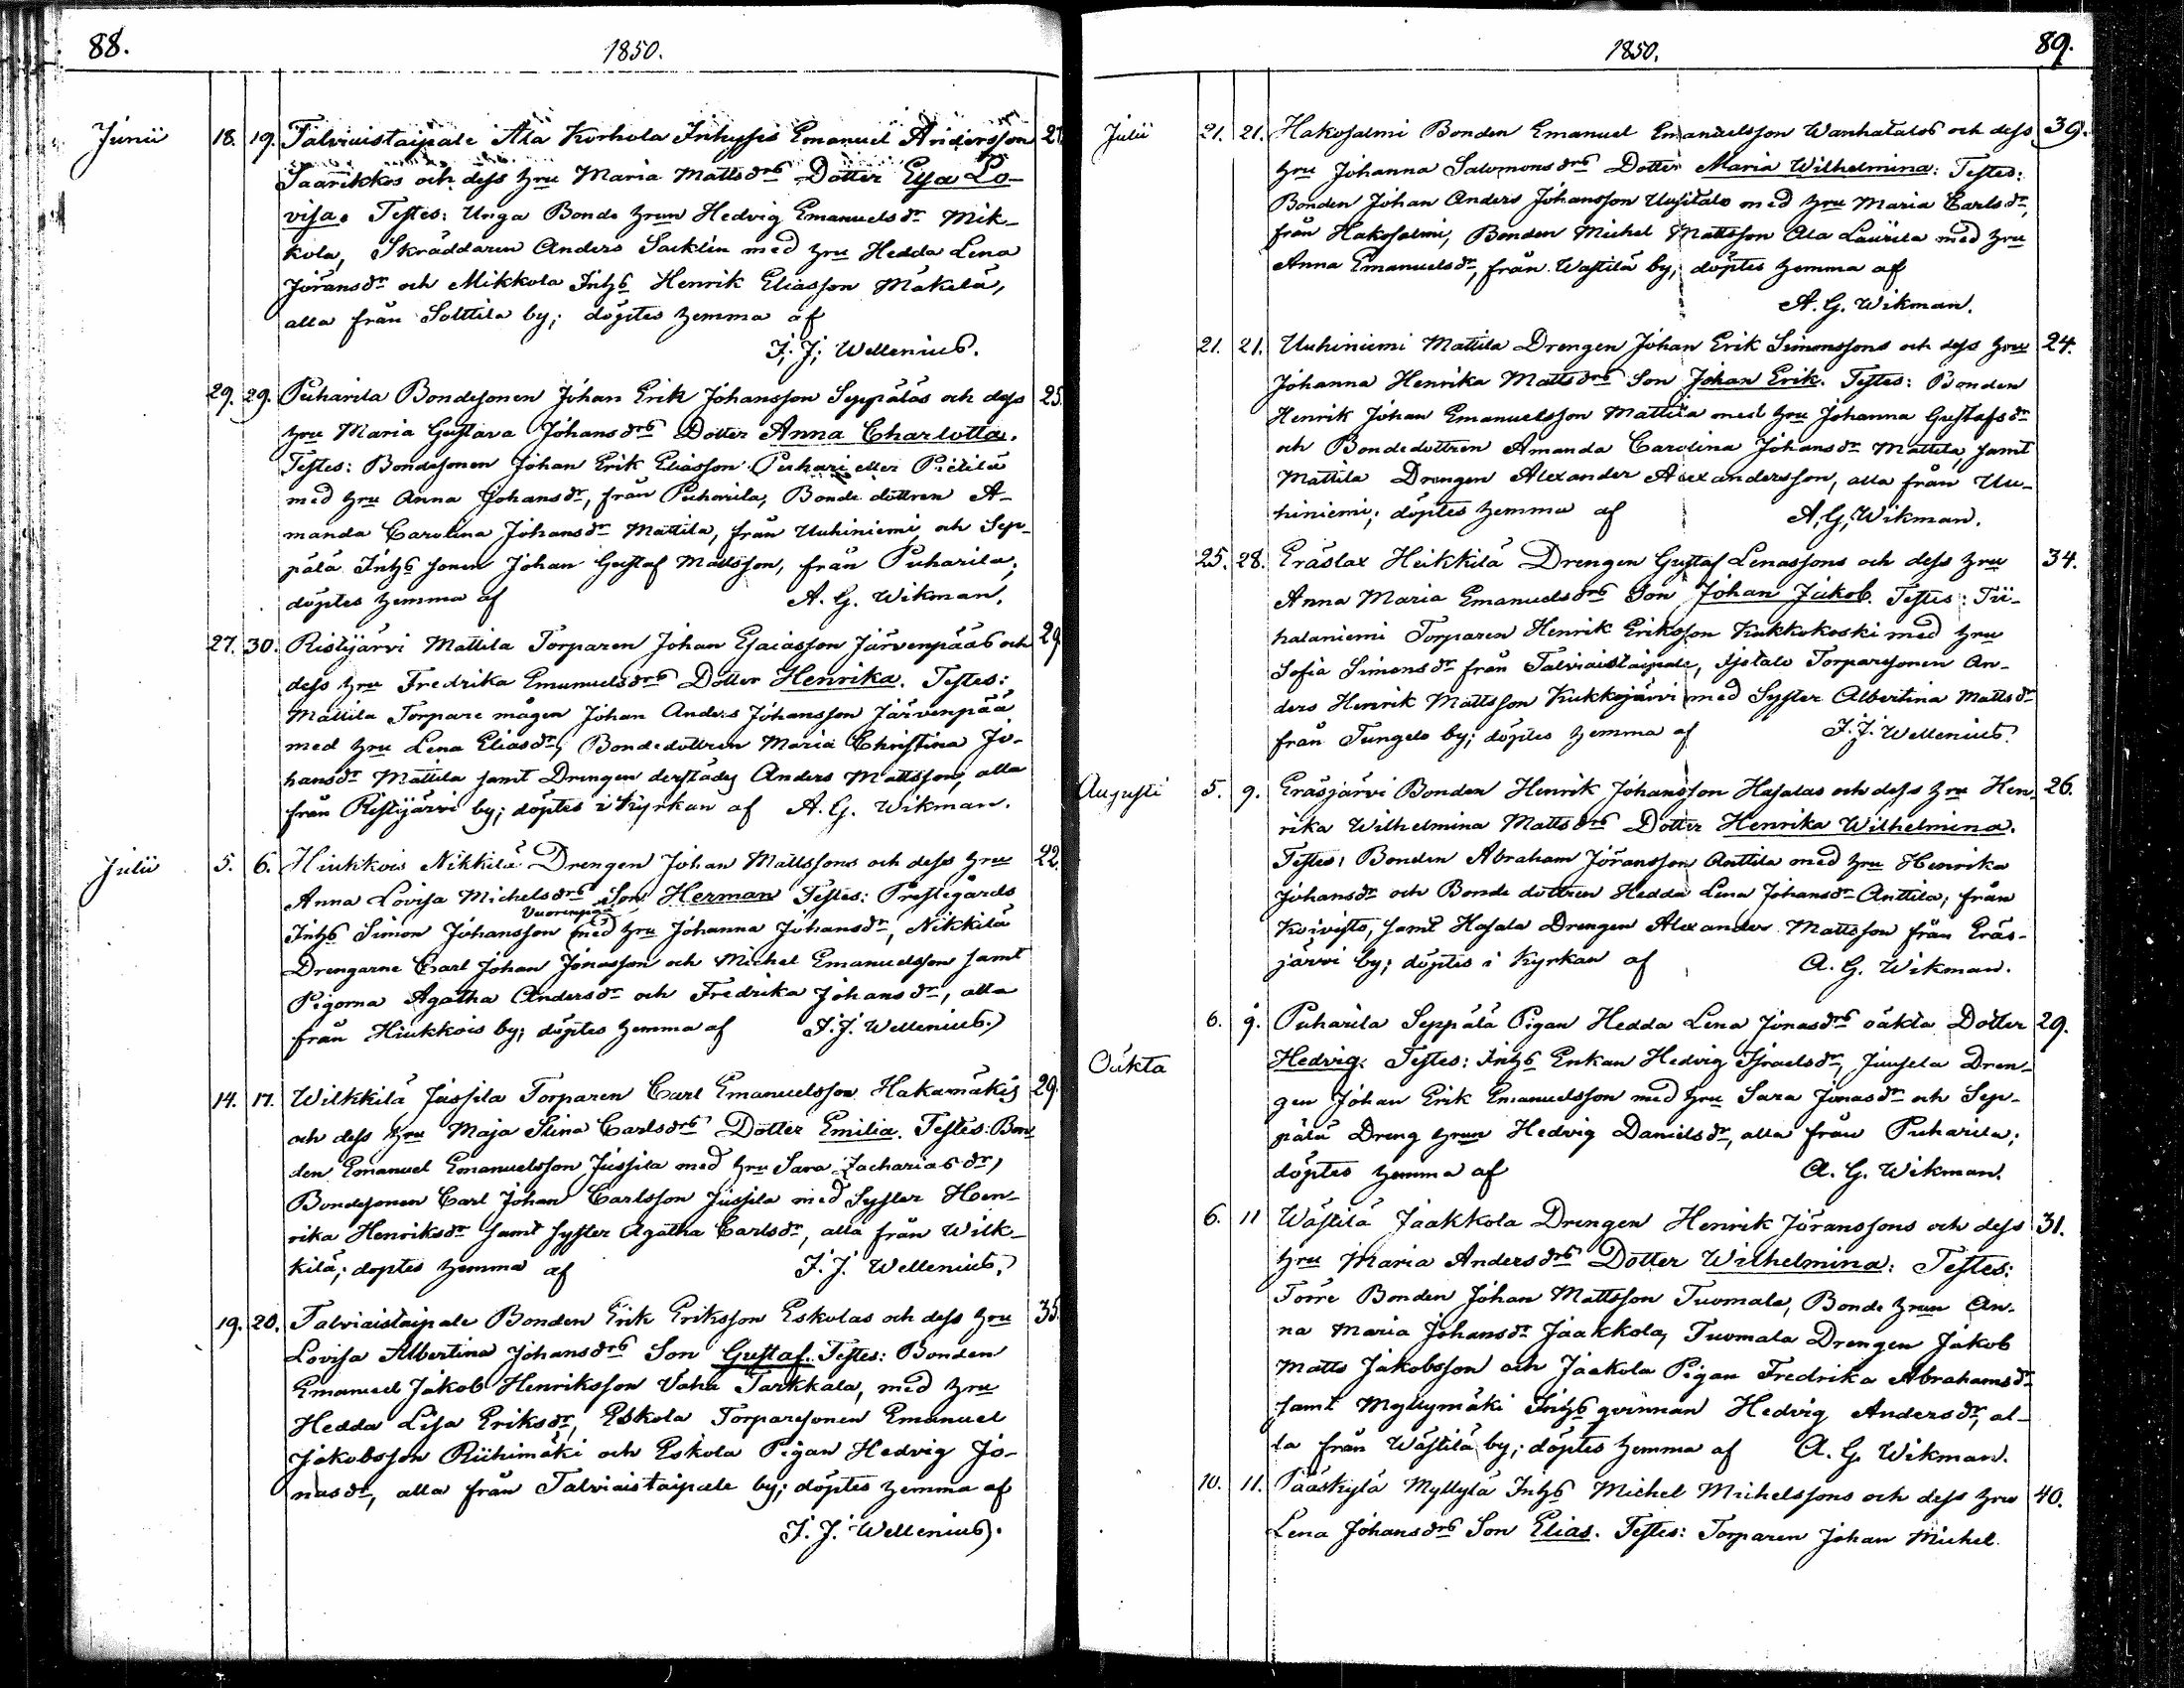 88.
1850.
Junii 18. 19. Talviaistaipale Ala Korhola Inhyses Emanuel Andersson 27
Saarikkos och dess hru Maria Mattsdrs Dotter Eva Lo-
visa. Testes: Unga Bonde hrun Hedvig Emanuelsdr Mik-
kola, Skräddaren Anders Sacklin med hru Hedda Lena
Jöransdr och Mikkola Inhs Henrik Eliasson Mäkelä,
alla från Solttila by; döptes hemma af
J. J. Wellenius.
29. 29. Puharila Bondesonen Johan Erik Johansson Seppäläs och dess 25.
hru Maria Gustava Johansdrs Dotter Anna Charlotta.
Testes: Bondesonen Johan Erik Eliasson Puhari eller Pietilä
med hru Anna Johansdr, från Puharila, Bonde dottren A-
manda Carolina Johansdr Mattila, från Uuhiniemi och Sep-
pälä Inhs sonen Johan Gustaf Mattsson, från Puharila;
döptes hemma af A. G. Wikman.
27. 30. Ristijärvi Mattila Torparen Johan Esaiasson Järvenpääs och 29
dess hru Fredrika Emanuelsdrs Dotter Henrika. Testes:
Mattila Torpare mågen Johan Anders Johansson Järvenpää
med hru Lena Eliasdr, Bondedottren Maria Christina Jo-
hansdr Mattila samt Drengen derstädes Anders Mattsson, alla
från Ristijärvi by; döptes i Kyrkan af A. G. Wikman.
Julii 5. 6. Hiukkois Nikkilä Drengen Johan Mattssons och dess hru 22.
Anna Lovisa Michelsdrs Son Herman Testes: Prestegårds
Vuorenpää
Inhs Simon Johansson med hru Johanna Johansdr, Nikkilä
Drengarne Carl Johan Jonasson och Michel Emanuelsson samt
Pigorna Agatha Andersdr och Fredrika Johansdr, alla
från Hiukkois by; döptes hemma af J. J. Wellenius.
14. 17. Wilkkilä Jussila Torparen Carl Emanuelsson Hakamäkis 29.
och dess hru Maja Stina Carlsdrs Dotter Emilia. Testes: Bon-
den Emanuel Emanuelsson Jussila med hru Sara Zachariasdr,
Bondesonen Carl Johan Carlsson Jussila med Syster Hen-
rika Henriksdr samt syster Agatha Carlsdr, alla från Wilk-
kilä; döptes hemma af J. J. Wellenius.
19. 20. Talviaistaipale Bonden Erik Eriksson Eskolas och dess hru 35
Lovisa Albertina Johansdrs Son Gustaf. Testes: Bonden
Emanuel Jakob Henriksson Vaha Tarkkala, med hru
Hedda Lisa Eriksdr, Eskola Torparesonen Emanuel
Jakobsson Riihimäki och Eskola Pigan Hedvig Jo-
nasdr, alla från Talviaistaipale by; döptes hemma af
J. J. Wellenius.
1850.
89.
Julii 21. 21. Hakosalmi Bonden Emanuel Emanuelsson Wanhatalos och dess 39.
hru Johanna Salomonsdrs Dotter Maria Wilhelmina: Testes:
Bonden Johan Anders Johansson Uusitalo med hru Maria Carlsdr,
från Hakosalmi, Bonden Michel Mattsson Ala Laurila med hru
Anna Emanuelsdr, från Wastilä by; döptes hemma af
A. G. Wikman.
21. 21. Uuhiniemi Mattila Drengen Johan Erik Simonssons och dess hru 24.
Johanna Henrika Mattsdrs Son Johan Erik. Testes: Bonden
Henrik Johan Emanuelsson Mattila med hru Johanna Gustafsdr
och Bondedottren Amanda Carolina Johansdr Mattila, samt
Mattila Drengen Alexander Alexandersson, alla från Uu-
hiniemi; döptes hemma af A. G. Wikman.
25. 28. Eräslax Heikkilä Drengen Gustaf Lenassons och dess hru 34.
Anna Maria Emanuelsdrs Son Johan Jakob. Testes: Tii-
palaniemi Torparen Henrik Eriksson Kukkokoski med hru
Sofia Simonsdr från Talviaistaipale, Isotalo Torparesonen An-
ders Henrik Mattsson Kukkojärvi med Syster Albertina Mattsdr
från Tungelo by; döptes hemma af J. J. Wellenius.
Augusti 5. 9. Eräsjärvi Bonden Henrik Johansson Hasalas och dess hru Hen- 26.
rika Wilhelmina Mattsdrs Dotter Henrika Wilhelmina.
Testes: Bonden Abraham Jöransson Anttila med hru Henrika
Johansdr och Bonde dottren Hedda Lena Johansdr Anttila, från
Koivisto, samt Hasala Drengen Alexander Mattsson från Eräs-
järvi by; döptes i Kyrkan af A. G. Wikman.
6. 9. Puharila Seppälä Pigan Hedda Lena Jonasdrs oäkta Dotter 29.
Oäkta Hedvig. Testes: Inhs Enkan Hedvig Israelsdr, Juusela Dren-
gen Johan Erik Emanuelsson med hru Sara Jonasdr och Sep-
pälä Dreng hrun Hedvig Danielsdr, alla från Puharila;
döptes hemma af A. G. Wikman.
6. 11 Wästilä Jaakkola Drengen Henrik Jöranssons och dess 31.
hru Maria Andersdrs Dotter Wilhelmina: Testes:
Förre Bonden Johan Mattsson Tuomala, Bonde hrun An-
na Maria Johansdr Jaakkola, Tuomala Drengen Jakob
Matts Jakobsson och Jaakola Pigan Fredrika Abrahamsdr
samt Myllymäki Inhs qvinnan Hedvig Andersdr, al-
la från Wästilä by; döptes hemma af A. G. Wikman.
10. 11. Pääskylä Myllylä Inhs Michel Michelssons och dess hru 40.
Lena Johansdrs Son Elias. Testes: Torparen Johan Michel